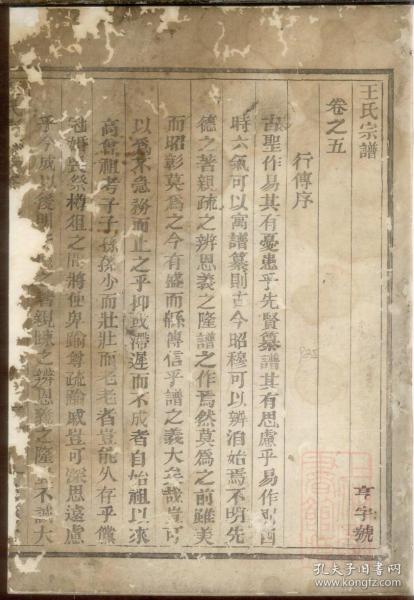 王氏宗譜
卷之五
亨字號
行傳序
古聖作易其有憂患乎先賢纂譜其有思慮乎易作則四
時六氣可以寓譜纂則古今昭穆可以辨洎始焉不明先
德之著親疏之辨恩義之隆譜之作焉然莫為之前雖美
而昭彰莫為之今有盛而縣傳信乎譜之義大矣哉豈可
以為不急務而止之乎抑或滯遲而不成者自始祖以來
高曾祖考子子孫孫少而壯壯而老老者豈能久存乎儻
冠婚喪祭樽俎之間將使卑踰尊疏踰戚豈可不深思遠慮
乎今成以後明 之著親疎之辨恩義之隆 不誠大
孔夫子旧书网
www.kongfz.com